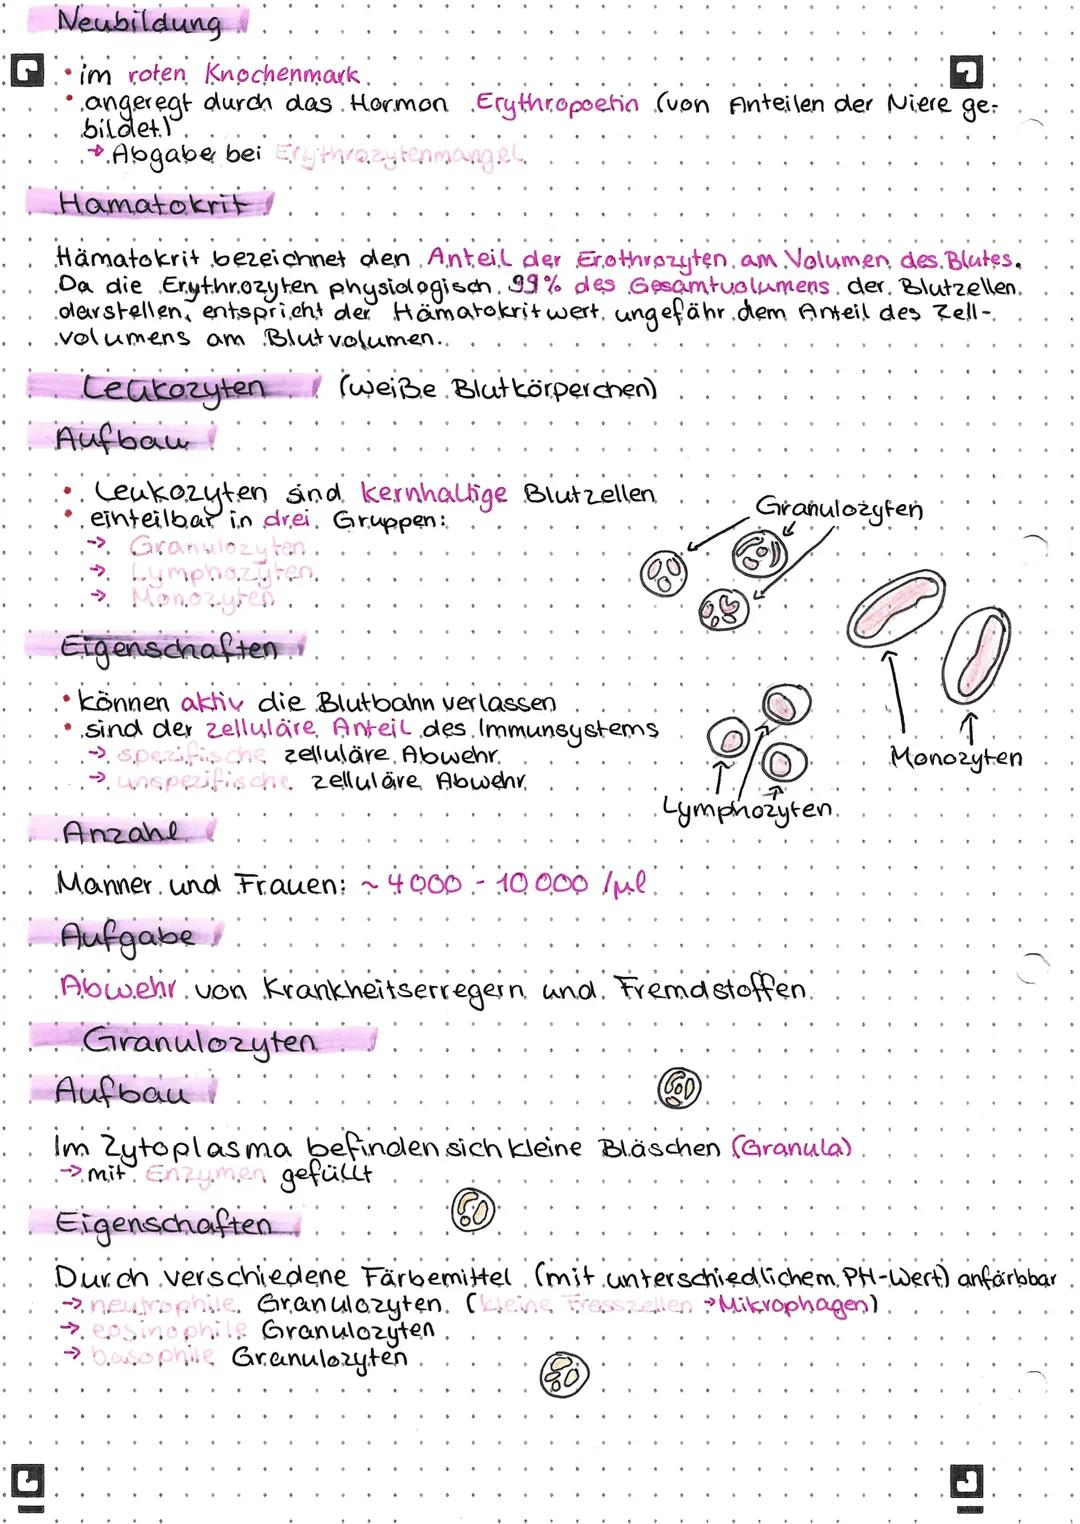 Neubildung
• im roten Knochenmark
• angeregt durch das Hormon Erythropoetin (von Anteilen der Niere ge-
bildet)
→ Abgabe bei Erythrozytenmangel
Hamatokrit
Hämatokrit bezeichnet den Anteil der Erothrozyten am Volumen des Blutes.
Da die Erythrozyten physiologisch 99% des Gesamtvolumens der Blutzellen
darstellen, entspricht der Hämatokritwert ungefähr dem Anteil des Zell-
volumens am Blutvolumen.
Leukozyten (weiße Blutkörperchen)
Aufbau
• Leukozyten sind kernhaltige Blutzellen
• einteilbar in drei Gruppen:
→ Granulozyten
→ Lymphozyten
→ Monozyten
Granulozyten
Eigenschaften
• können aktiv die Blutbahn verlassen
• sind der zelluläre Anteil des Immunsystems
→ spezifische zelluläre Abwehr
→ unspezifische zelluläre Abwehr
Monozyten
Lymphozyten
Anzahl
Manner und Frauen: ~ 4000 - 10 000 /µl
Aufgabe
Abwehr von Krankheitserregern und Fremdstoffen
Granulozyten
Aufbau
Im Zytoplasma befinden sich kleine Bläschen (Granula)
→ mit Enzymen gefüllt
Eigenschaften
Durch verschiedene Färbemittel (mit unterschiedlichem PH-Wert) anfärbbar
→ neutrophile Granulozyten (kleine Fresszellen → Mikrophagen)
→ eosinophile Granulozyten
→ basophile Granulozyten